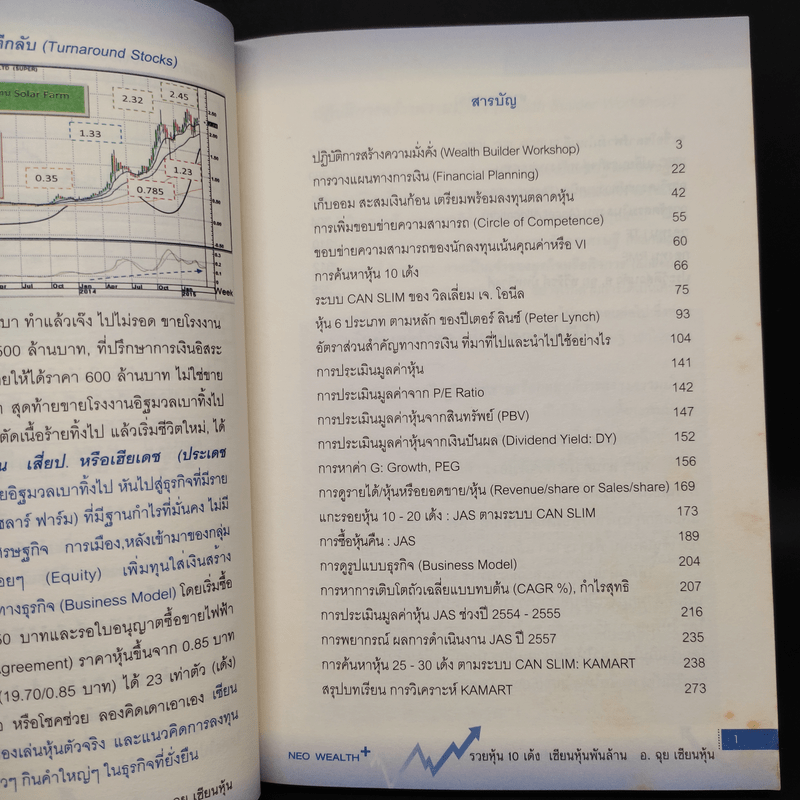 (Turnaround Stocks)
LTD (SUPER)
Solar Farm
2.32
2.45
1.33
0.35
0.785
1.23
Jul Oct Jan Apr Jul Oct Jan
2014 2015 Week
ทำแล้วเจ๊ง ไปไม่รอด ขายโรงงาน
ล้านบาท, ที่ปรึกษาการเงินอิสระ
ให้ได้ราคา 600 ล้านบาท ไม่ใช่ขาย
สุดท้ายขายโรงงานอิฐมวลเบาทิ้งไป
ตัดเนื้อร้ายทิ้งไป แล้วเริ่มชีวิตใหม่, ได้
เสี่ยป. หรือเฮียเดช (ประเดช
อิฐมวลเบาทิ้งไป หันไปสู่ธุรกิจที่มีราย
ฟาร์ม) ที่มีฐานกำไรที่มั่นคง ไม่มี
การเมือง,หลังเข้ามาของกลุ่ม
(Equity) เพิ่มทุนใส่เงินสร้าง
ทางธุรกิจ (Business Model) โดยเริ่มซื้อ
บาทและรอใบอนุญาตซื้อขายไฟฟ้า
Agreement) ราคาหุ้นขึ้นจาก 0.85 บาท
(19.70/0.85 บาท) ได้ 23 เท่าตัว (เด้ง)
หรือโชคช่วย ลองคิดเดาเอาเอง เซียน
เล่นหุ้นตัวจริง และแนวคิดการลงทุน
กินคำใหญ่ๆ ในธุรกิจที่ยั่งยืน
ฉุย เซียนหุ้น
สารบัญ
ปฏิบัติการสร้างความมั่งคั่ง (Wealth Builder Workshop) 3
การวางแผนทางการเงิน (Financial Planning) 22
เก็บออม สะสมเงินก้อน เตรียมพร้อมลงทุนตลาดหุ้น 42
การเพิ่มขอบข่ายความสามารถ (Circle of Competence) 55
ขอบข่ายความสามารถของนักลงทุนเน้นคุณค่าหรือ VI 60
การค้นหาหุ้น 10 เด้ง 66
ระบบ CAN SLIM ของ วิลเลี่ยม เจ. โอนีล 75
หุ้น 6 ประเภท ตามหลัก ของปีเตอร์ ลินช์ (Peter Lynch) 93
อัตราส่วนสำคัญทางการเงิน ที่มาที่ไปและนำไปใช้อย่างไร 104
การประเมินมูลค่าหุ้น 141
การประเมินมูลค่าจาก P/E Ratio 142
การประเมินมูลค่าหุ้นจากสินทรัพย์ (PBV) 147
การประเมินมูลค่าหุ้นจากเงินปันผล (Dividend Yield: DY) 152
การหาค่า G: Growth, PEG 156
การดูรายได้/หุ้นหรือยอดขาย/หุ้น (Revenue/share or Sales/share) 169
แกะรอยหุ้น 10 - 20 เด้ง : JAS ตามระบบ CAN SLIM 173
การซื้อหุ้นคืน : JAS 189
การดูรูปแบบธุรกิจ (Business Model) 204
การหาการเติบโตถัวเฉลี่ยแบบทบต้น (CAGR %), กำไรสุทธิ 207
การประเมินมูลค่าหุ้น JAS ช่วงปี 2554 - 2555 216
การพยากรณ์ ผลการดำเนินงาน JAS ปี 2557 235
การค้นหาหุ้น 25 - 30 เด้ง ตามระบบ CAN SLIM: KAMART 238
สรุปบทเรียน การวิเคราะห์ KAMART 273
1
NEO WEALTH+ รวยหุ้น 10 เด้ง เซียนหุ้นพันล้าน อ. ฉุย เซียนหุ้น